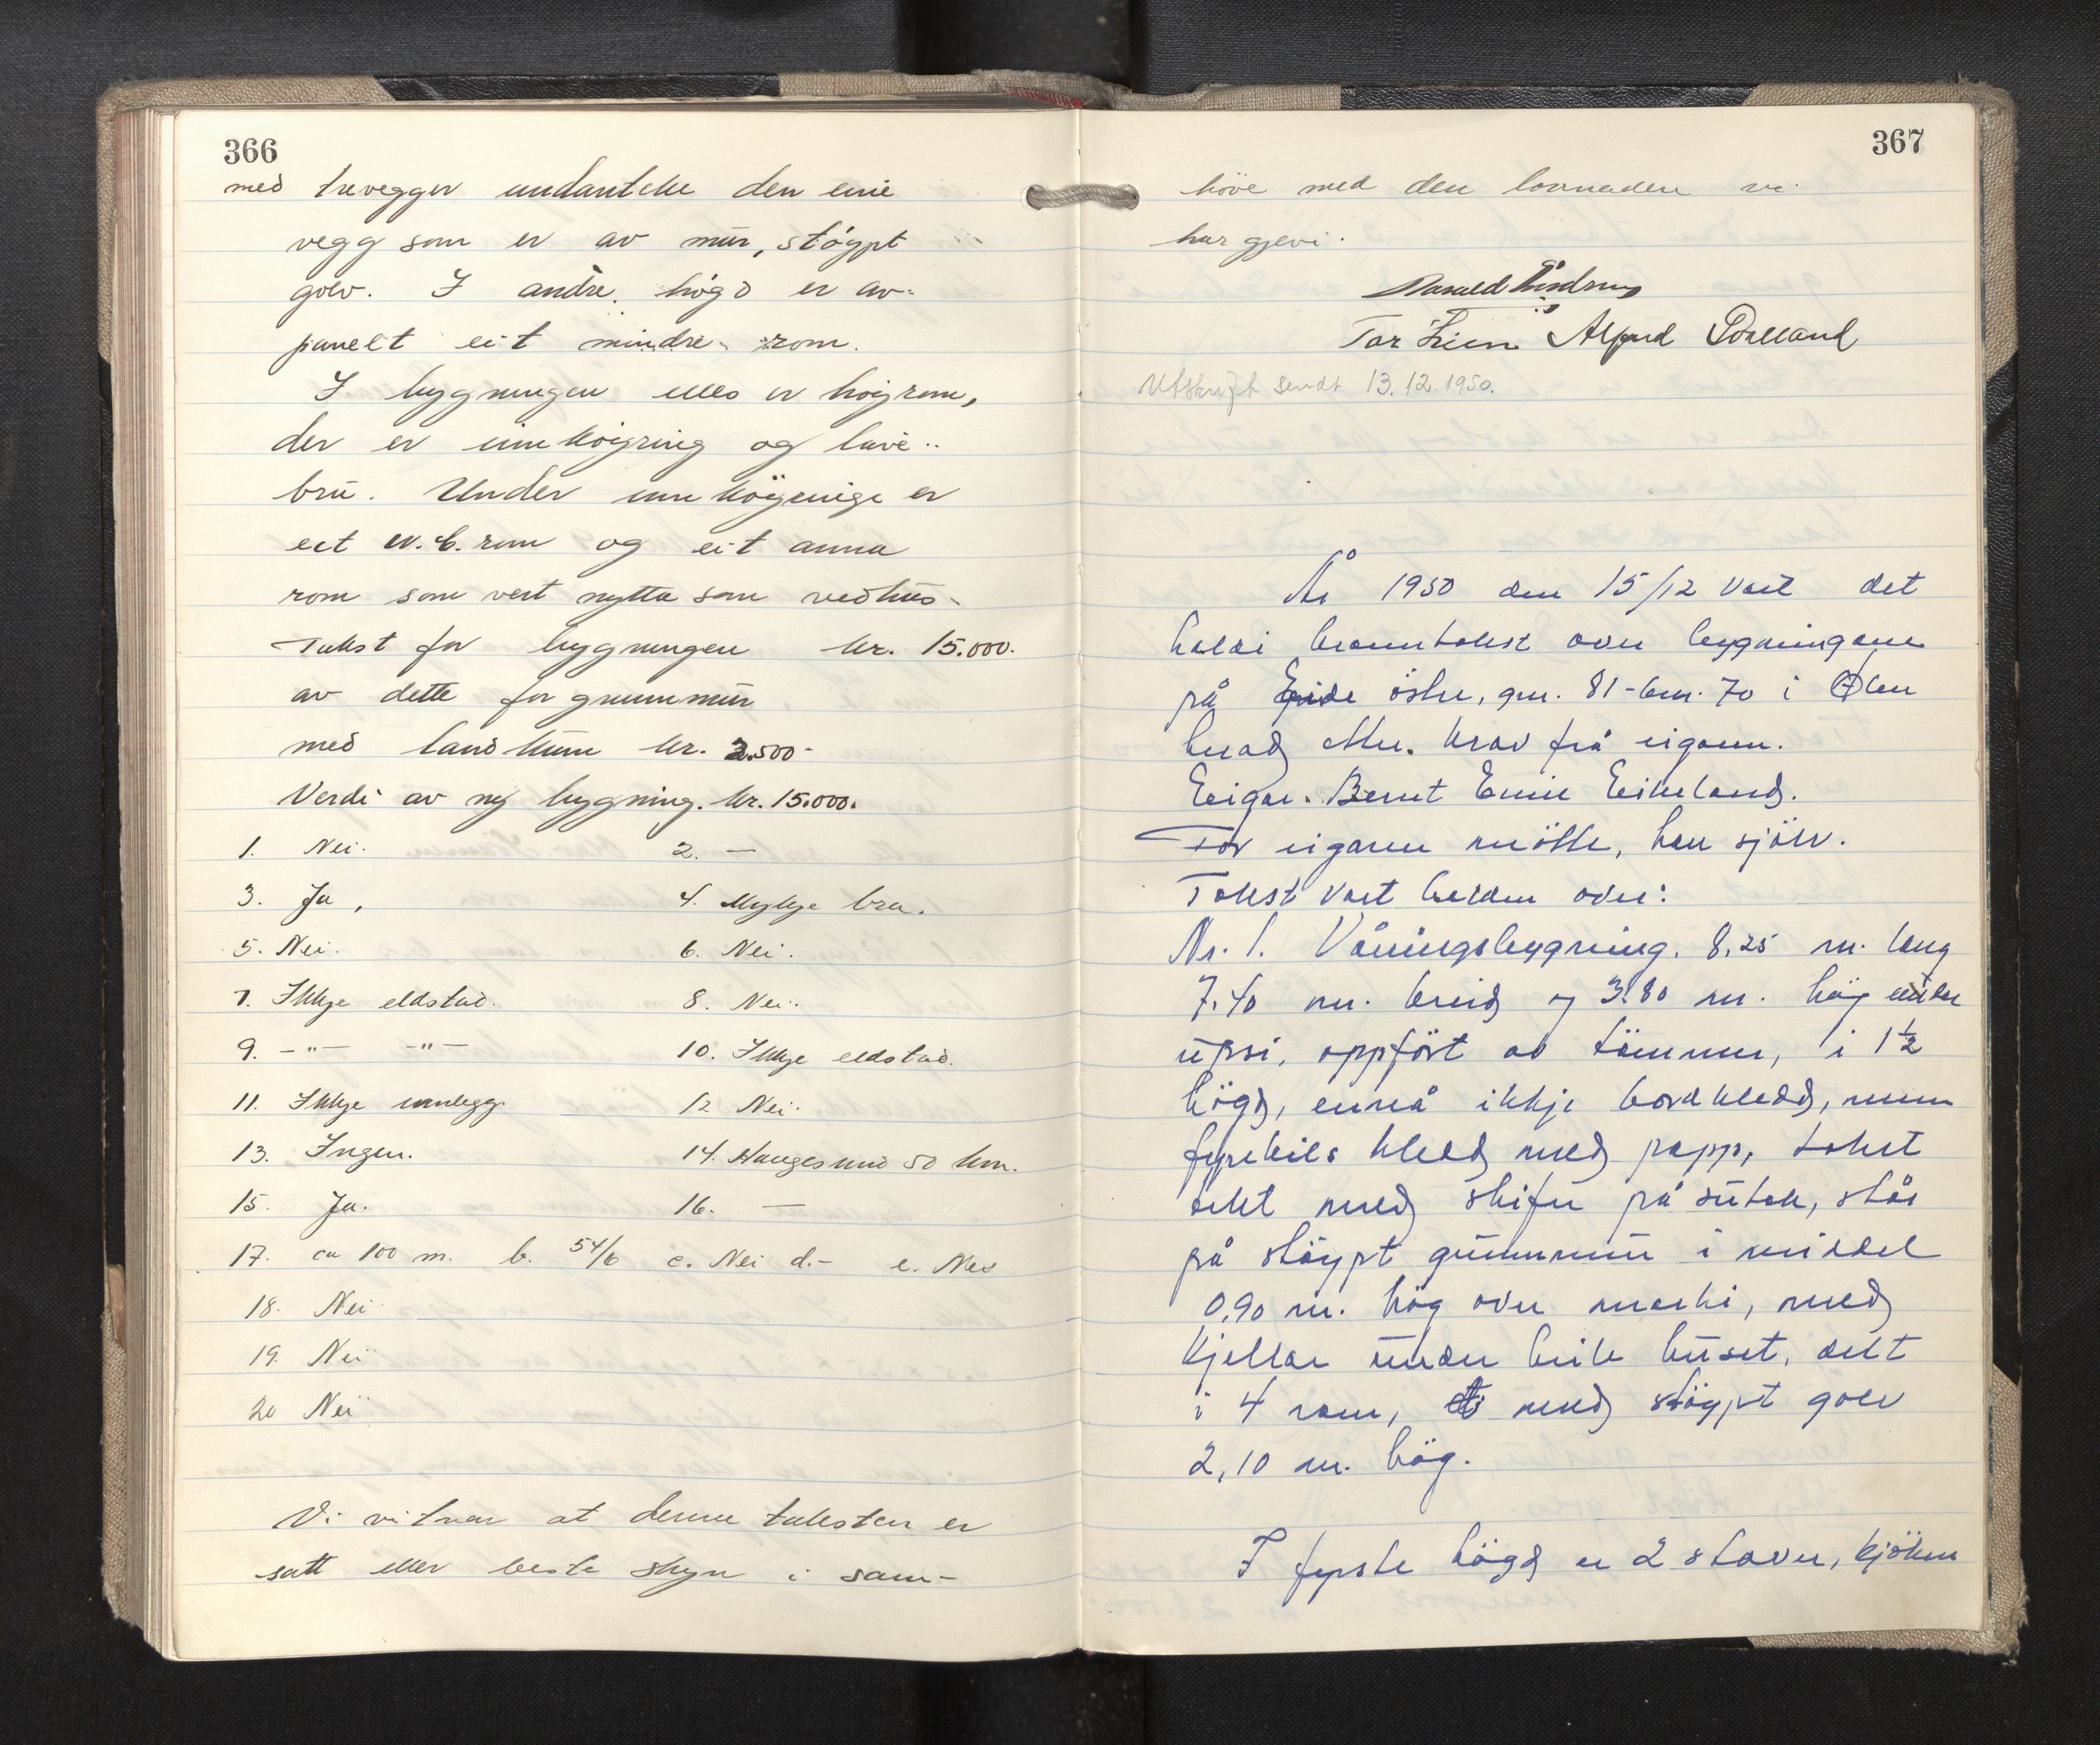 366
med trevegger undanteke den eine
vegg som er av mur, støypt
golv. I andre högd er av-
panelt eit mindre rom.
I bygningen elles er höyrom,
der er innköyring og låve-
bru. Under innköyringe er
eit W.C. rom og eit anna
rom som vert nytta som vedhus-
Takst for bygningen kr. 15.000.
av dette for grunnmur
med landkum kr. 2.500-
Verdi av ny bygning. kr. 15.000.
1. Nei. 2. —
3. Ja, 4. Mykje bra.
5. Nei. 6. Nei.
7. Ikkje eldstad. 8. Nei.
9. -"- -"- 10. Ikkje eldstad.
11. Ikkje innlegg. 12 Nei.
13. Ingen. 14. Haugesund 50 km.
15. Ja. 16. —
17. ca 100 m. b. 54/6 c. Nei d.- e. Nei
18. Nei
19. Nei
20 Nei
Vi vitnar at denne taksten er
satt etter beste skyn i sam-
367
höve med den lovnaden vi
har gjevi.
Tor Lien Alfred
Utskrift sendt 13.12.1950.
År 1950 den 15/12 vart det
haldi branntakst over bygningane
på Eide östre, gnr. 81 - bnr. 70 i Ølen
herad etter krav frå eigaren.
Eigar. Bernt Emil Eikeland.
For eigaren mötte, han sjölv.
Takst vart halden over:
Nr. 1. Våningsbygning. 8,25 m. lang
7.40 m. breid og 3.80 m. høg under
upsi, oppfört av tömmer, i 1½
högd, ennå ikkje bordkledd, men
fyrebils kledd med papp, taket
tekt med skifer på sutak, står
på støypt grunnmur i middel
0,90 m. hög over marki, med
kjellar under heile huset, delt
i 4 rom, med støypt golv
2,10 m. hög.
I fyrste högd er 2 stover, kjöken